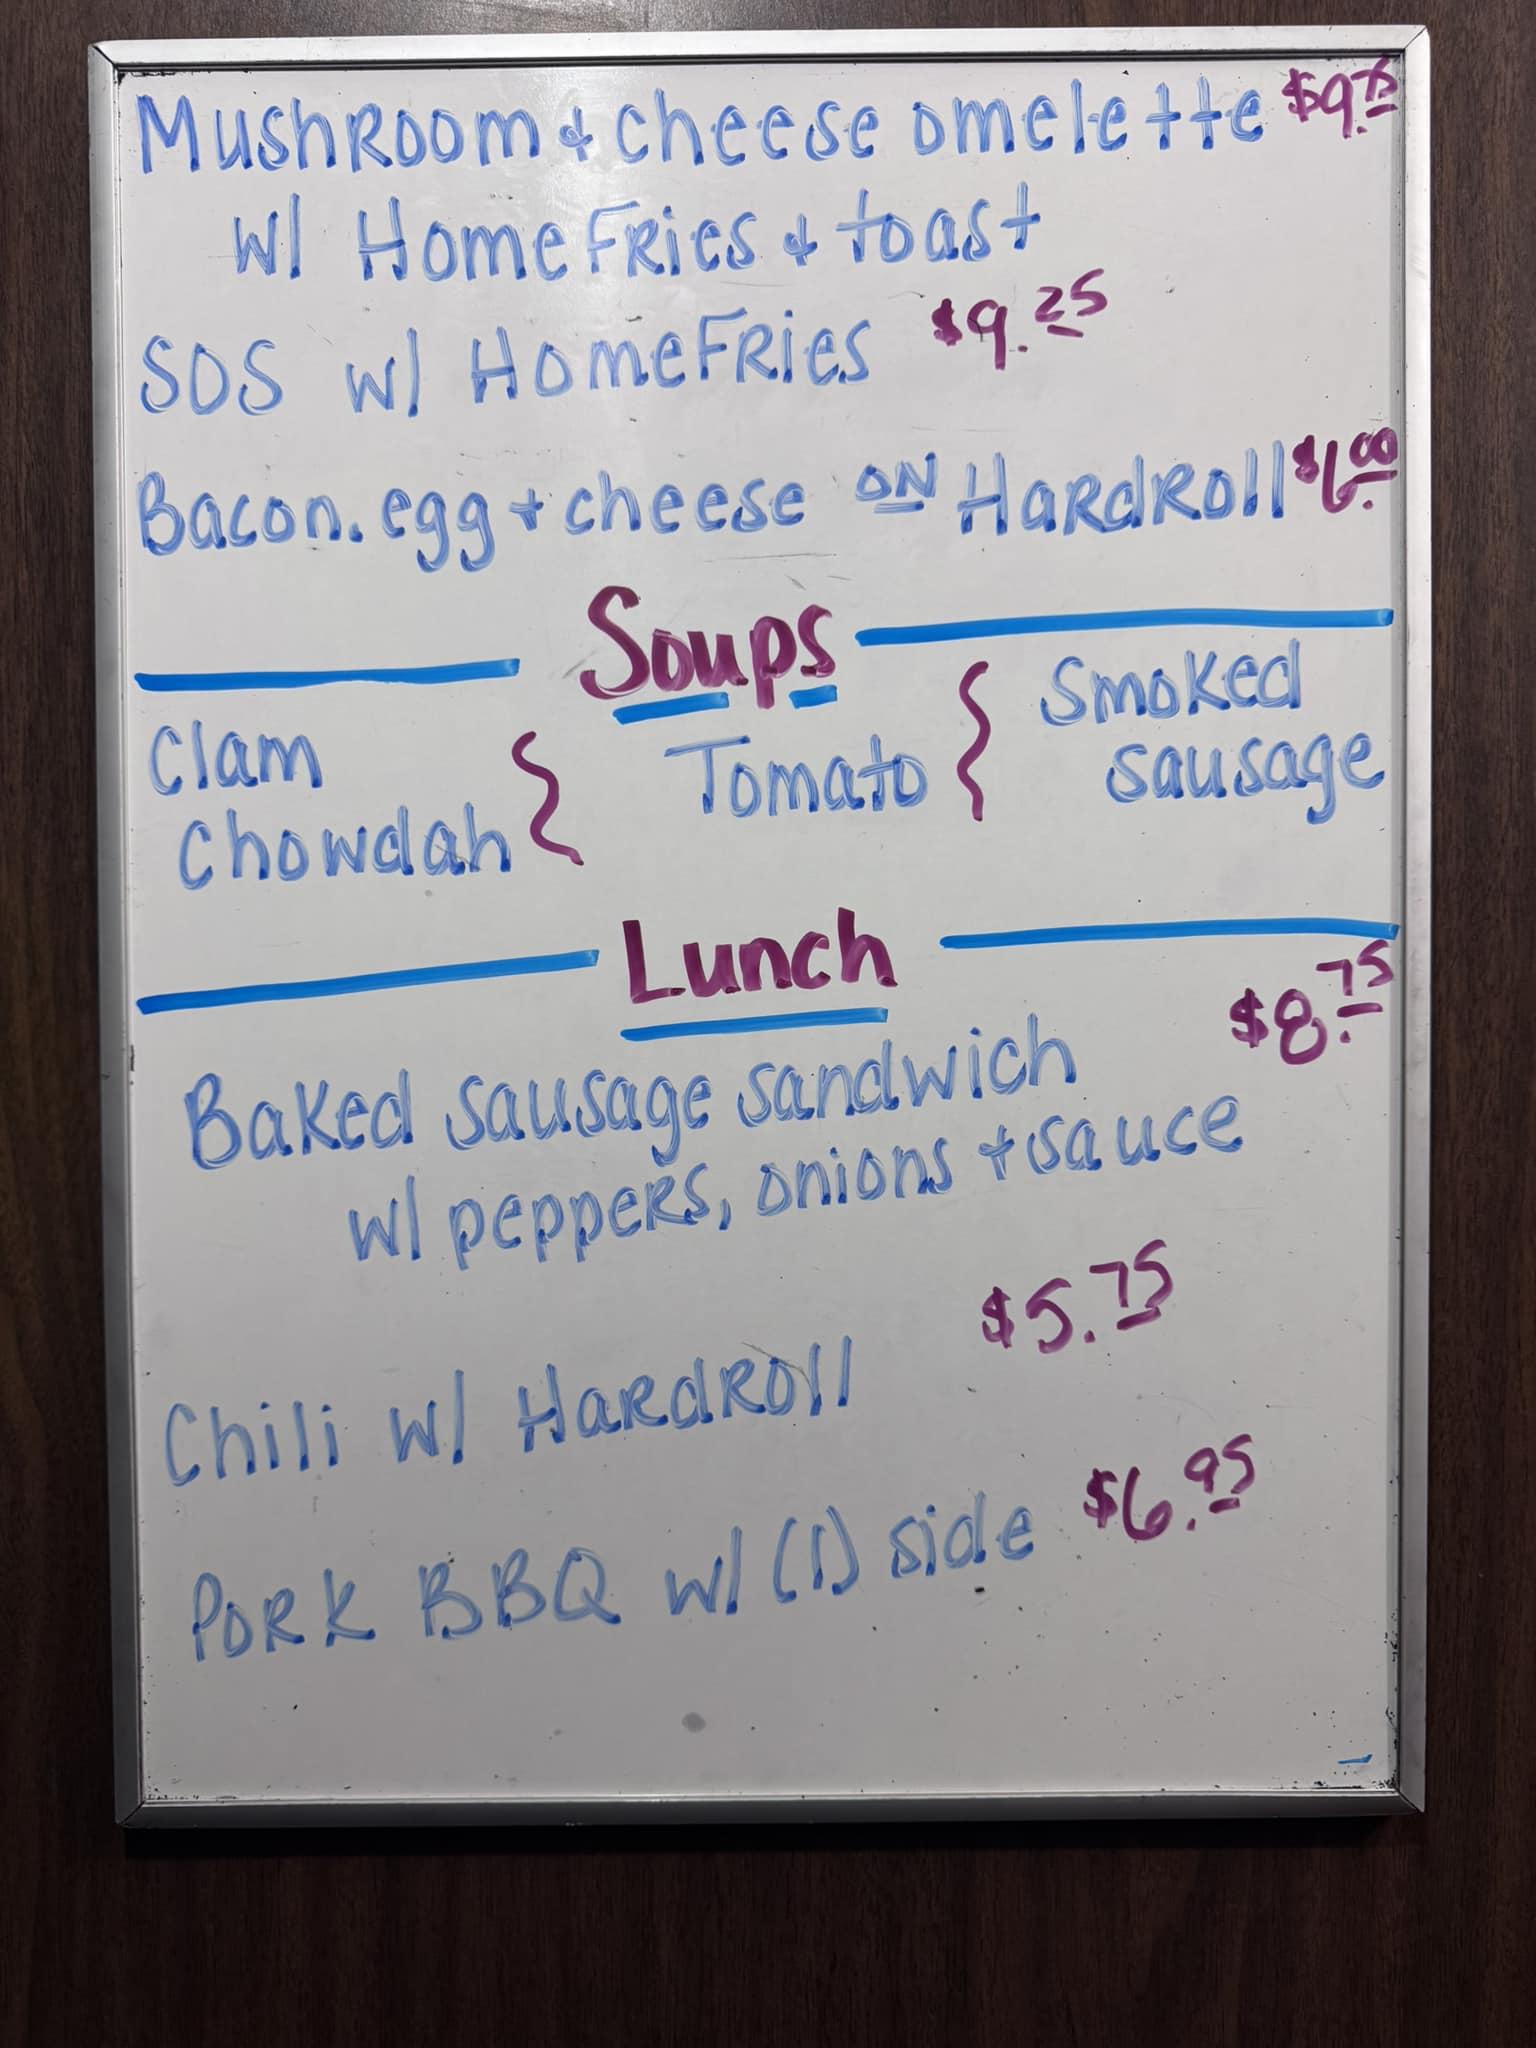 Mushroom & cheese omelette $9.75
w/ HomeFries & toast
SOS w/ HomeFries $9.25
Bacon. egg + cheese on Hardroll $6.00
Soups
Clam Chowdah } Tomato } Smoked sausage
Lunch
$8.75
Baked sausage sandwich
w/ peppers, onions + sauce
$5.75
Chili w/ Hardroll
Pork BBQ w/ (1) side $6.95